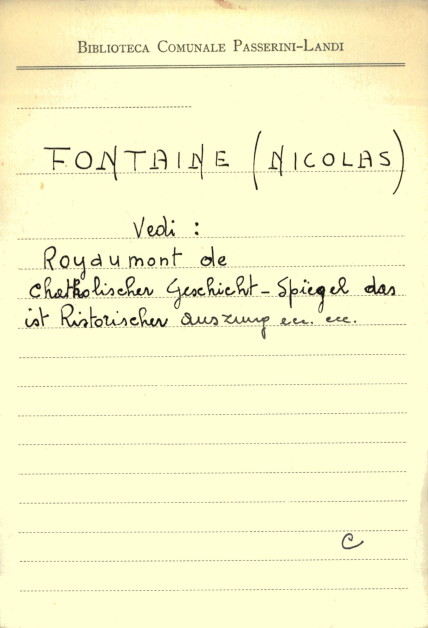 BIBLIOTECA COMUNALE PASSERINI-LANDI
FONTAINE (NICOLAS)
Vedi :
Royaumont de
Chatkolischer Geschicht-Spiegel das
ist Ristorischer auszung ecc. ecc.
C